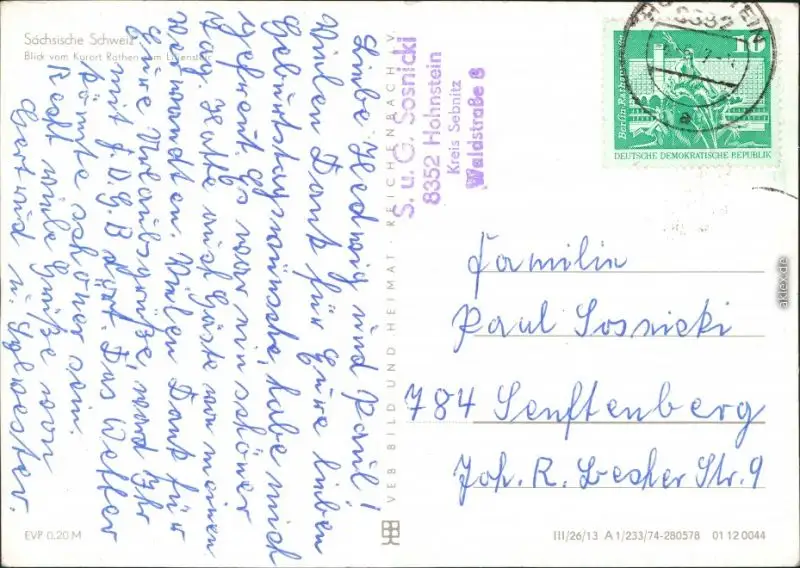 Sächsische Schweiz
Blick vom Kurort Rathen zum Lilienstein
Liebe Hedwig und Paul!
Vielen Dank für Eure lieben
Geburtstagswünsche, habe mich
gefreut. Es war ein schöner
Tag. Hatte auch Gäste von meinen
Verwandten. Vielen Dank für
Eure Urlaubsgrüße, ward Ihr
mit F.D.G.B dort. Das Wetter
könnte schöner sein.
Recht viele Grüße von
Gertrud u. Sylvester.
EVP 0,20 M
VEB BILD UND HEIMAT · REICHENBACH I. V.
S. u. G. Sosnicki
8352 Hohnstein
Kreis Sebnitz
Waldstraße 6
HOHNSTEIN
8352
a
10
Berlin-Rathausstraße
DEUTSCHE DEMOKRATISCHE REPUBLIK
Familie
Paul Sosnicki
784 Senftenberg
Joh. R. Becher Str. 9
III/26/13 A 1/233/74-280578 01 12 0044
akpool.de